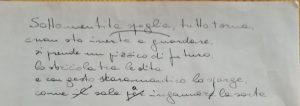 Sottomentite spoglie, tutto torna,
e non sta inerte a guardare,
si prende un pizzico di futuro
lo sbriciola tra le dita
e con gesto scaramantico lo sparge,
come il sale per ingannare la sorte